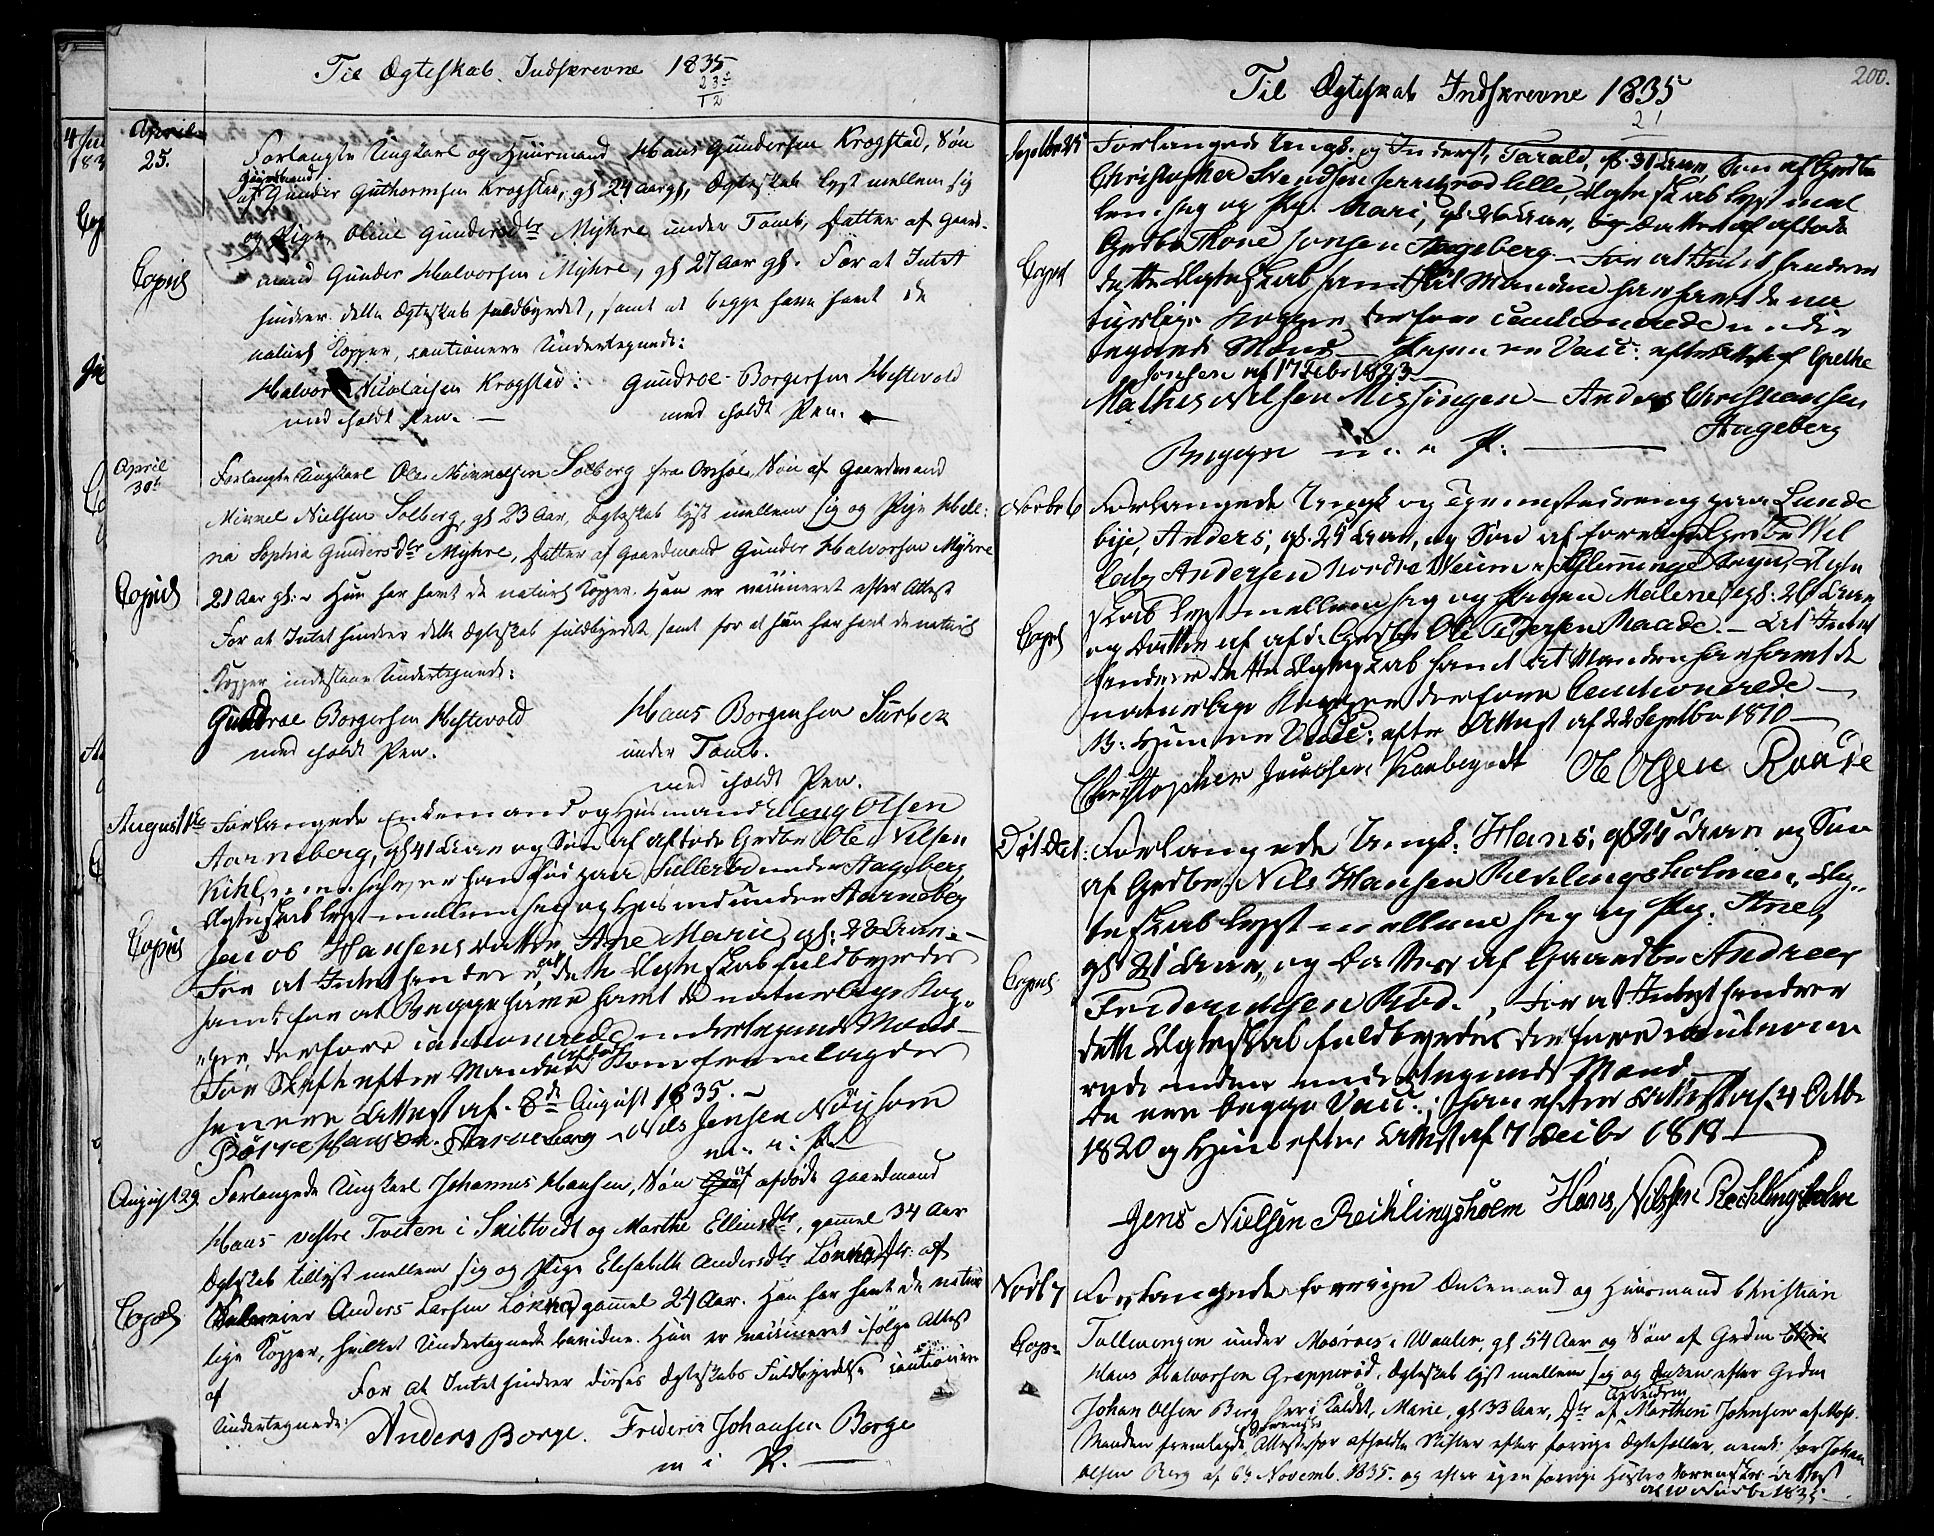 Til Ægteskab Indskrevne 1835
23
12
April
25.
Forlangte Ungkarl og Huusmand Hans Gundersen Krogstad, Søn
Gaardmand
af Gunder Guthormsen Krogstad, gl 24 aar gl, Ægteskab lyst mellem sig
og Pige Oline Gundersdtr Myhre under Tomb, Datter af Gaard-
mand Gunder Halvorsen Myhre, gl 27 Aar gl. For at Intet
Copul
hindrer dette Ægteskab fuldbyrdet, samt at begge have havt de
naturl Kopper, cautionere Undertegnede:
Halvor Nicolaisen Krogstad: Gundroe Borgersen Hestevold
med iholdt Pen. — med iholdt Pen.
April
30t
Forlangte Ungkarl Ole Minnelsen Solberg fra Onsøe, Søn af Gaardmand
Minnel Nielsen Solberg, gl 23 Aar, Ægteskab lyst mellem sig og Pige Hele-
na Sophia Gundersdtr Myhre, Datter af Gaardmand Gunder Halvorsen Myhre
Copul
21 Aar gl. Hun har havt de naturl Kopper. Han er vaccineret efter Attest
For at Intet hindrer dette Ægteskab fuldbyrdet samt for at hun har havt de naturl
Kopper indestaae Undertegnede:
Gundroe Borgersen Hestevold Hans Borgersen Surbek
med iholdt Pen. under Tomb.
med iholdt Pen.
August
Forlangede Enkemand og Huusmand Elling Olsen
Aarneberg, gl 41 Aar og Søn af afdøde Grdbr Ole Nilsen
Kihl, under Hageberg,
Ægteskab lyst mellem sig og Husmd under Aarneberg
Copul
Jacob Hansens Datter Ane Marie, gl: 28 Aar.
For at Intet hindrer at dette Ægteskab fuldbyrdes
samt for at Begge have havt de naturlige Kop-
per derfore cautionerede undertegnede Mænd
For Skifte efter Mandens afdøde Kone fremlagdes
Attest af 8de August 1835.
Børre Hansen Aarneberg Nils Jensen Nøysom
m. i. P.
August 29.
Forlangede Ungkarl Johannes Hansen, Søn af afdøde Gaardmand
Hans vestre Tveten i Skibtvedt og Marthe Ellinsdtr, gammel 34 Aar
Ægteskab tillyst mellem sig og Pige Elisabeth Andersdtr Lønna, Dtr: af
Copul
Anders Larsen Lønna, gammel 24 Aar. Han har havt de natur-
lige Kopper, hvilket Undertegnede bevidne. Hun er vaccineret ifølge Attest
af For at Intet hindrer disses Ægteskabs Fuldbyrdelse cautionere
Undertegnede:
Anders Borge. Frederik Johansen Borge
m i P.
200.
Til Ægteskab Indskrevne 1835
21
Septbr 25
Forlangede Ungk. og Inderst, Tarald, gl. 31 Aar, Søn af Grdbr
Christopher Svendsen lille, Ægteskab lyst mel
lem sig og Pig. Mari, gl. 26 Aar, og Datter af afdøde
Grdbr Thore Jonsen Hageberg — For at Intet hindrer
Copul
dette Ægteskab samt at Manden har havt de na
turlige Kopper derfore cautionerede under
tegnede Mænd — Pigen er Vacc: efter Attest af Grethe
Jonsen af 17 Febr 1823
Mathis Nilsen Missingen — Anders Christiansen
Hageberg
Begge m. i. P.
Novbr 6
Forlangede Ungk og Tjenestedreng paa Lunde
bye, Anders, gl. 25 Aar, og Søn af Grdbr Mel
Andersen Nordre Weum i Glemminge Sogn, Ægte
skab lyst mellem sig og Pigen Malene, gl: 28 Aar
Copul
og Datter af afd. Grdbr Ole Pedersen Raade. — At Intet
hindrer dette Ægteskab samt at Manden har havt de
naturlige Kopper derfore Cautionerede —
N: Hun er Vacc: efter Attest af 22 Septbr 1810 —
Christopher Jacobsen Karlsegodt Ole Olsen Raade
Forlangede Ungk. Hans, gl 25 Aar og Søn
af Grdbr. Nils Hansen Reklingsholmen, Æg-
teskab lyst mellem sig og Pig. Ane,
gl 21 Aar, og Datter af Gaardbr Andreas
Copul
Friderichsen Rød., For at Intet hindrer
dette Ægteskab fuldbyrdes derfore cautione
rede undertegnede Mænd.
De ere begge Vacc.; han efter Attest af 4 Octbr
1820 og Hun efter Attest af 7 Decbr 1818
Jens Nielsen Reiklingsholm Hans Nilssen Recklingsholm
Novbr 7
Forlangede Enkemand og Huusmand Christian
Copu
Tollevengen under Mosroes i Waaler, gl 54 Aar og Søn af Grdm
Hans Halvorsen Greppsrød, Ægteskab lyst mellem sig og Enken efter Grdm
Arbeidsm
Johan Olsen Berg her i Kaldet, Marie, gl 33 Aar, Dtr af Morthen Johnsen af Moss.
Manden fremlagde Attester for afholdte Skifter efter forrige Ægtefæller, nemlig: for Johan
Olsen Berg af 6te Novemb. 1835. og efter egen forrige Hustru Sorenskr. Attest
af 10 Novbr 1835